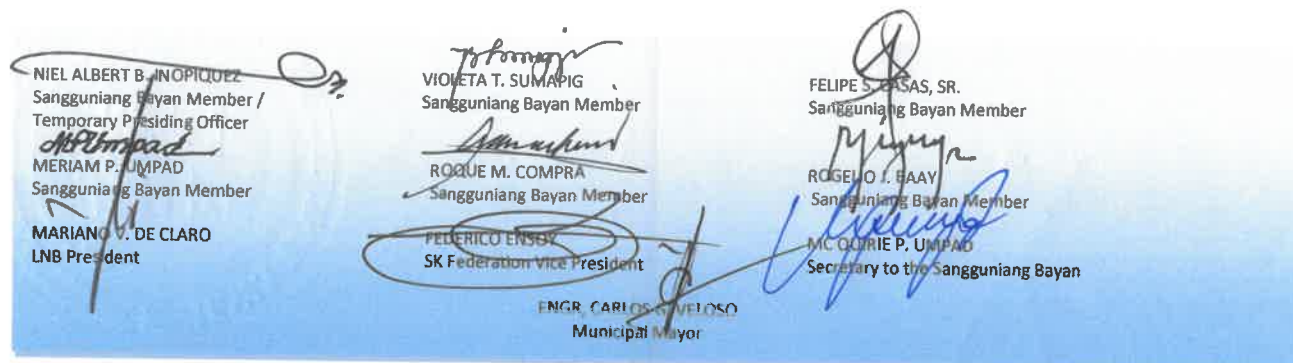 NIEL ALBERT B. INOPIQUEZ
Sangguniang Bayan Member /
Temporary Presiding Officer
MERIAM P. UMPAD
Sangguniang Bayan Member
MARIANO DE CLARO
LNB President
VIOLETA T. SUMAPIG
Sangguniang Bayan Member
ROQUE M. COMPRA
Sangguniang Bayan Member
FEDERICO ENSOY
SK Federation Vice President
FELIPE S. CASAS, SR.
Sangguniang Bayan Member
ROGELIO J. BAAY
Sangguniang Bayan Member
MC QUIRIE P. UMPAD
Secretary to the Sangguniang Bayan
ENGR. CARLOS G. VELOSO
Municipal Mayor